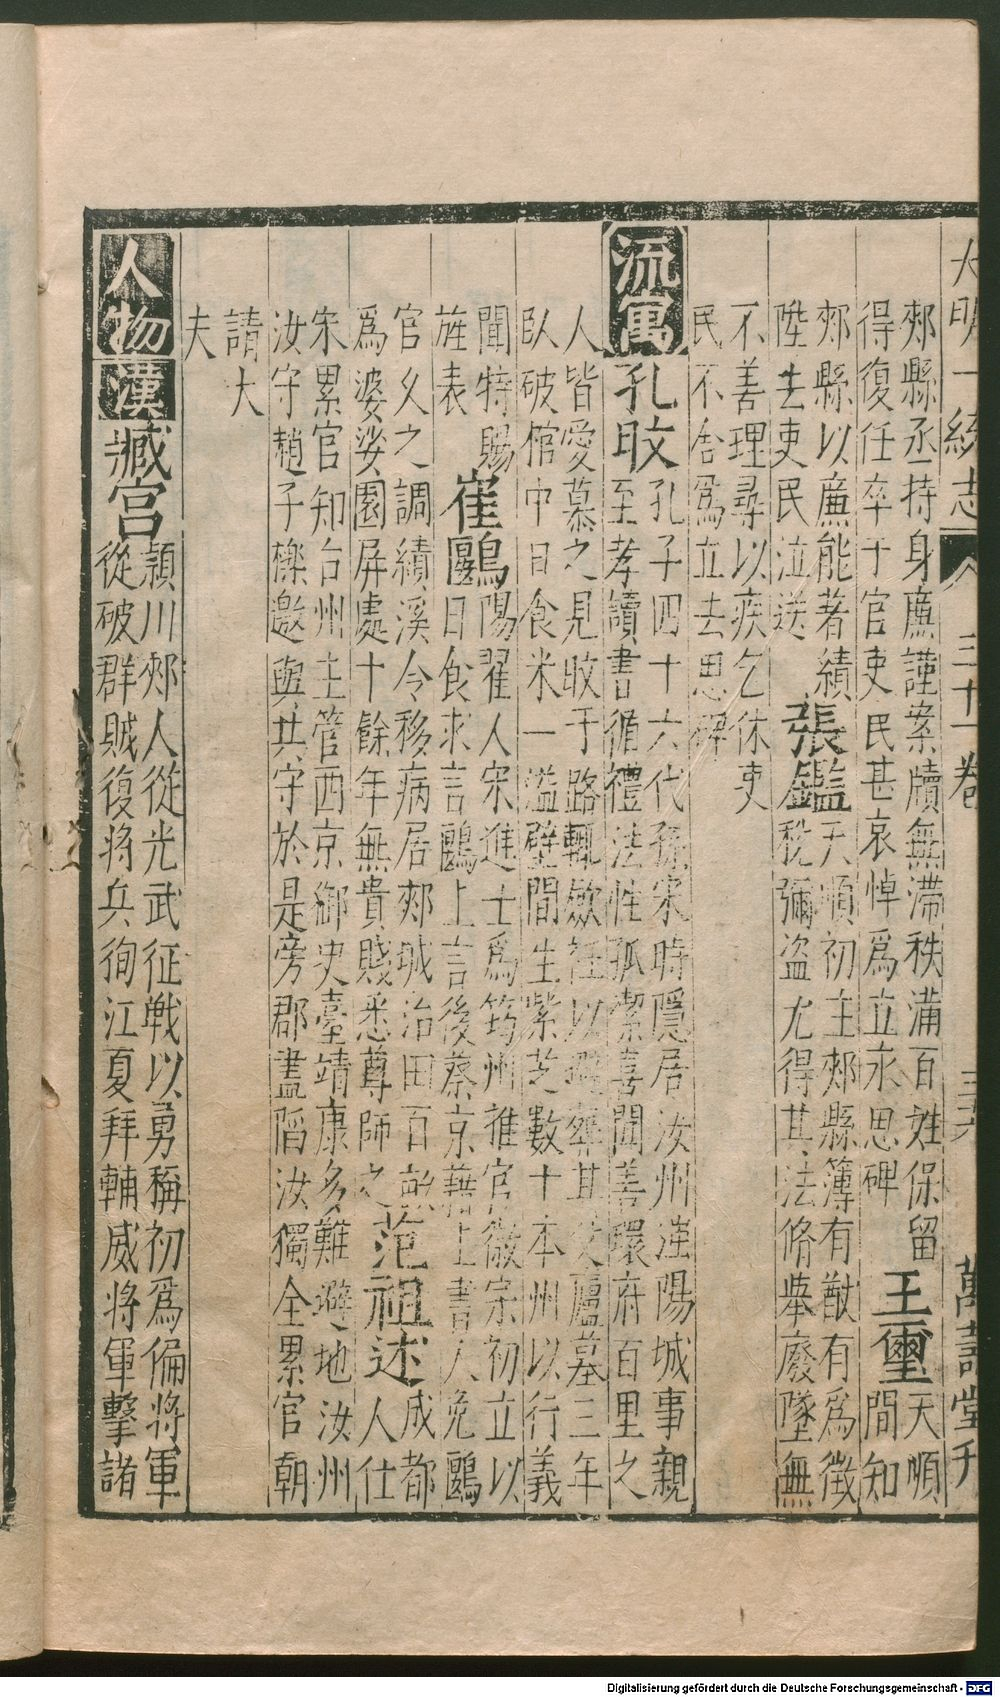 大明一統志 三十一卷 三六 萬壽堂刋
郟縣丞持身廉謹案牘無滯秩滿百姓保留
得復任卒于官吏民甚哀悼爲立永思碑
王璽
天順
間知
郟縣以廉能著績
陞去吏民泣送
張鑑
天順初主郟縣簿有猷有爲徵
稅弭盗尤得其法脩舉廢墜無
不善理尋以疾乞休吏
民不舍爲立去思碑
流寓
孔旼
孔子四十六代孫宋時隱居汝州滍陽城事親
至孝讀書循禮法性孤潔喜聞善環府百里之
人皆愛慕之見旼于路輒歛衽以避葬其父廬墓三年
臥破棺中日食米一溢壁間生紫芝數十本州以行義
聞特賜
旌表
崔鷗
陽翟人宋進士爲筠州推官徽宗初立以
日食求言鷗上言後蔡京藉上書人免鷗
官久之調績溪令移病居郟城治田百畝
爲婆娑園屏處十餘年無貴賤悉尊師之
范祖述
成都
人仕
宋累官知台州主管西京御史臺靖康多難避地汝州
汝守趙子櫟邀與共守於是旁郡盡陷汝獨全累官朝
請大
夫
人物
漢
臧宫
潁川郟人從光武征戰以勇稱初爲偏將軍
從破群賊復將兵徇江夏拜輔威將軍擊諸
Digitalisierung gefördert durch die Deutsche Forschungsgemeinschaft - DFG